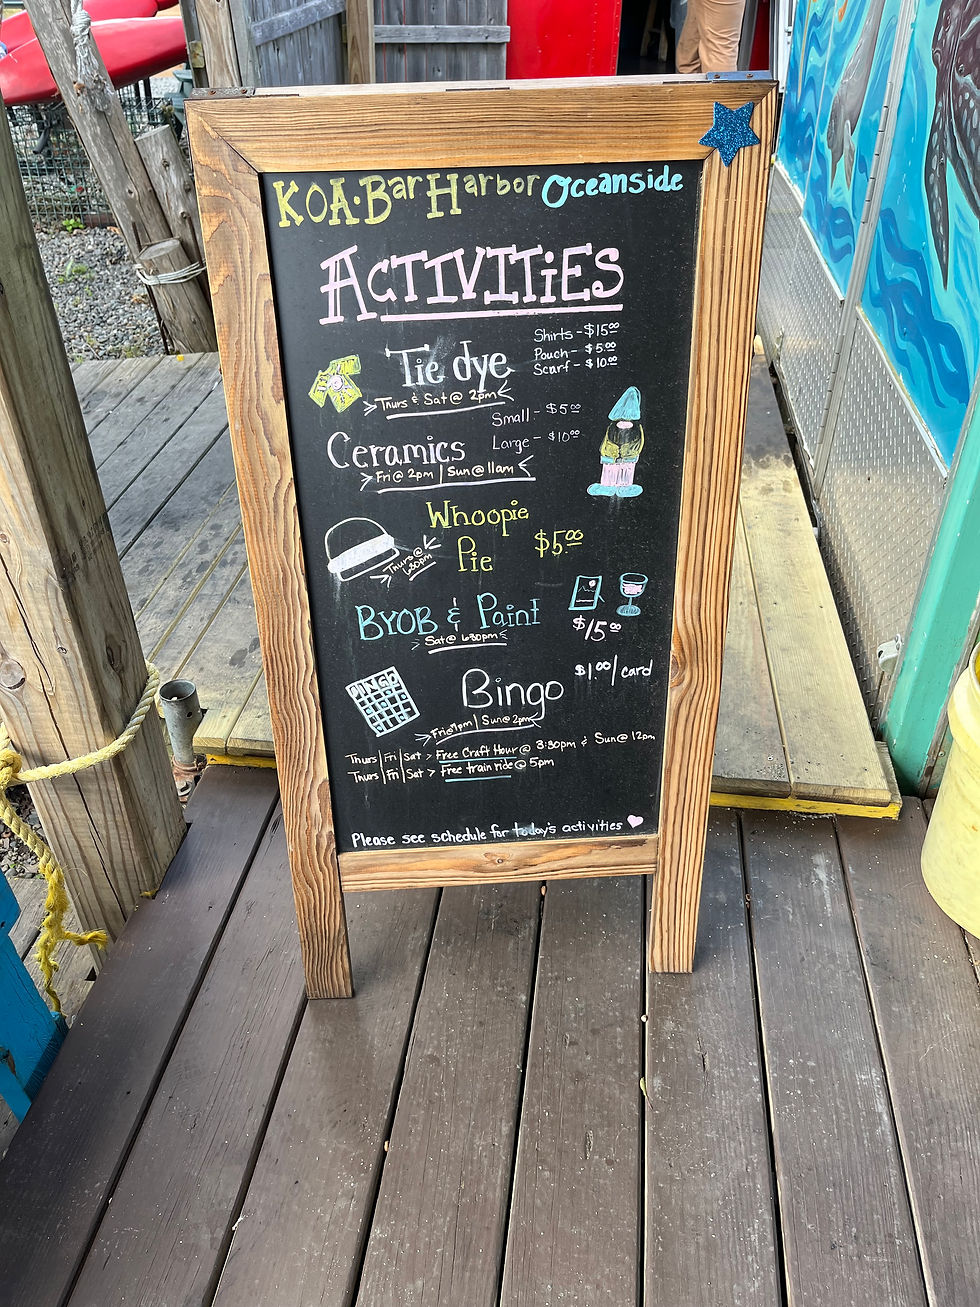 KOA·Bar Harbor Oceanside
ACTIVITiES
Tie dye
Shirts - $15⁰⁰
Pouch - $5⁰⁰
Scarf - $10⁰⁰
Thurs & Sat @ 2pm
Ceramics
Small - $5⁰⁰
Large - $10⁰⁰
Fri @ 2pm | Sun @ 11am
Whoopie
Pie
$5⁰⁰
Thurs @
6:30pm
BYOB & Paint
$15⁰⁰
Sat @ 6:30pm
BINGO
Bingo
$1⁰⁰/card
Fri @ 7pm | Sun @ 2pm
Thurs | Fri | Sat > Free Craft Hour @ 3:30pm & Sun @ 12pm
Thurs | Fri | Sat > free train ride @ 5pm
Please see schedule for today's activities